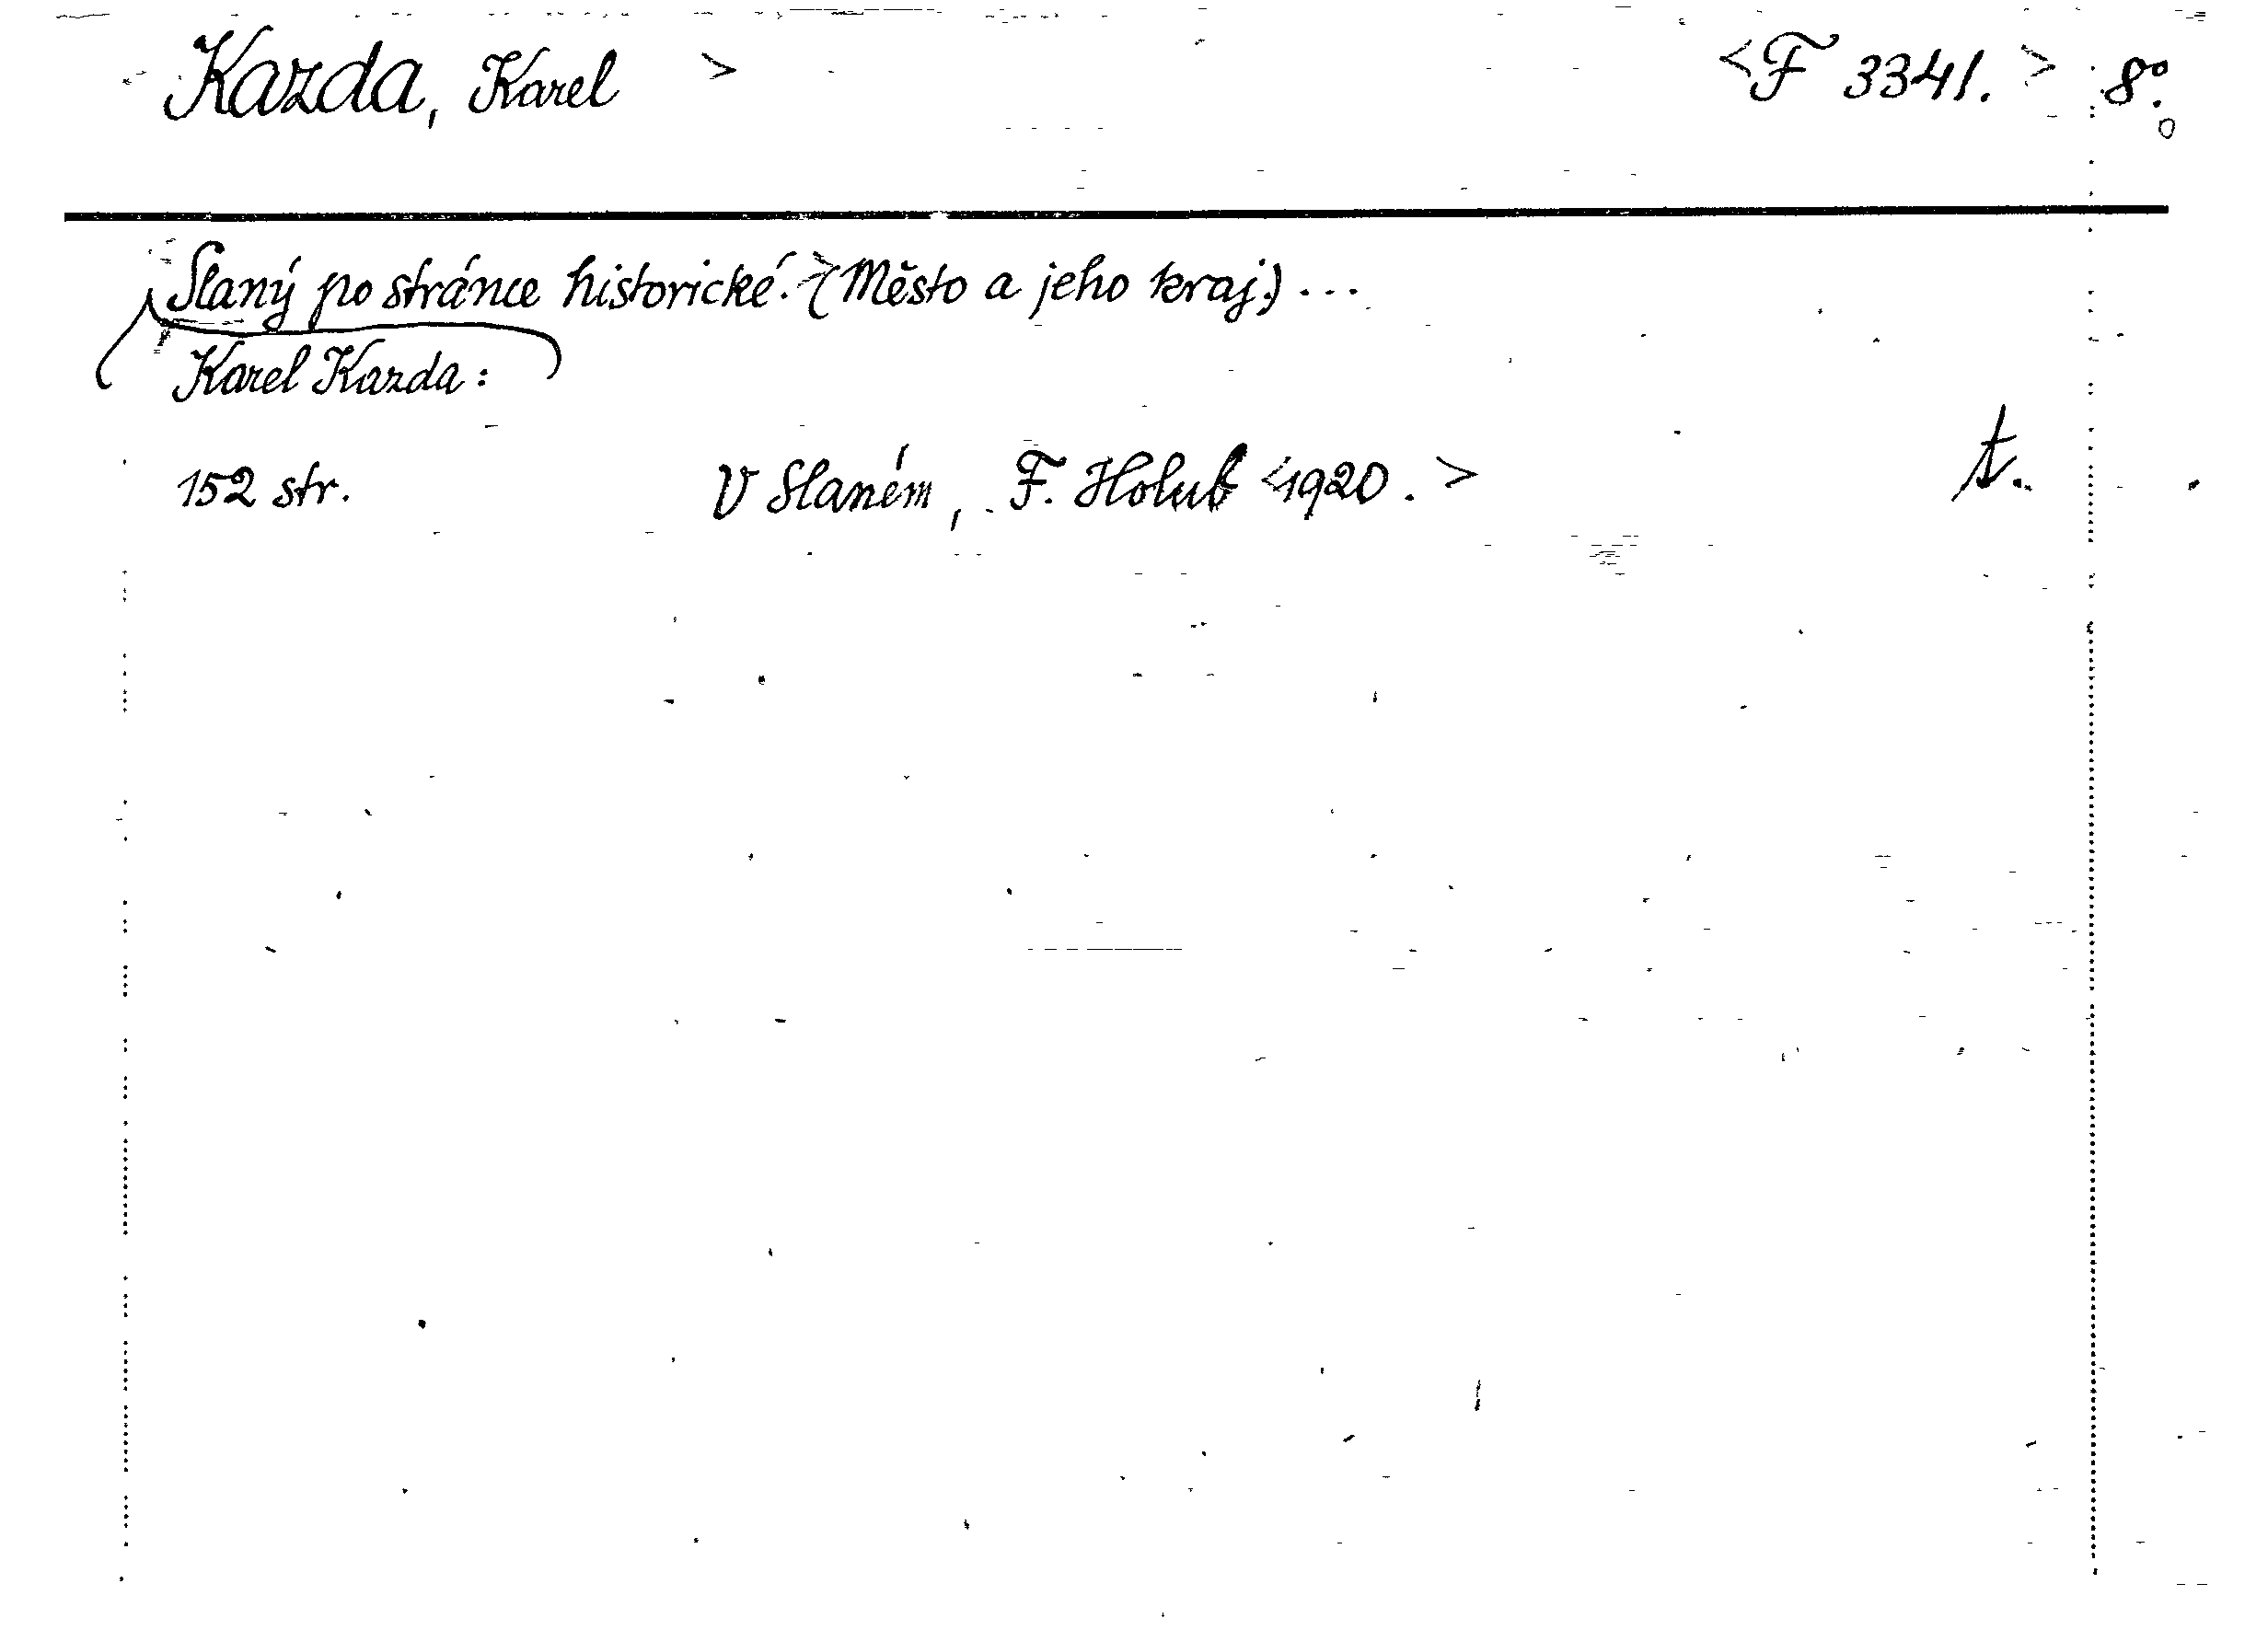 Kazda, Karel > <F 3341. > 8°.
Slaný po stránce historické. > (Město a jeho kraj.) ...
Karel Kazda:
152 str. V Slaném, F. Holub <1920. > t.